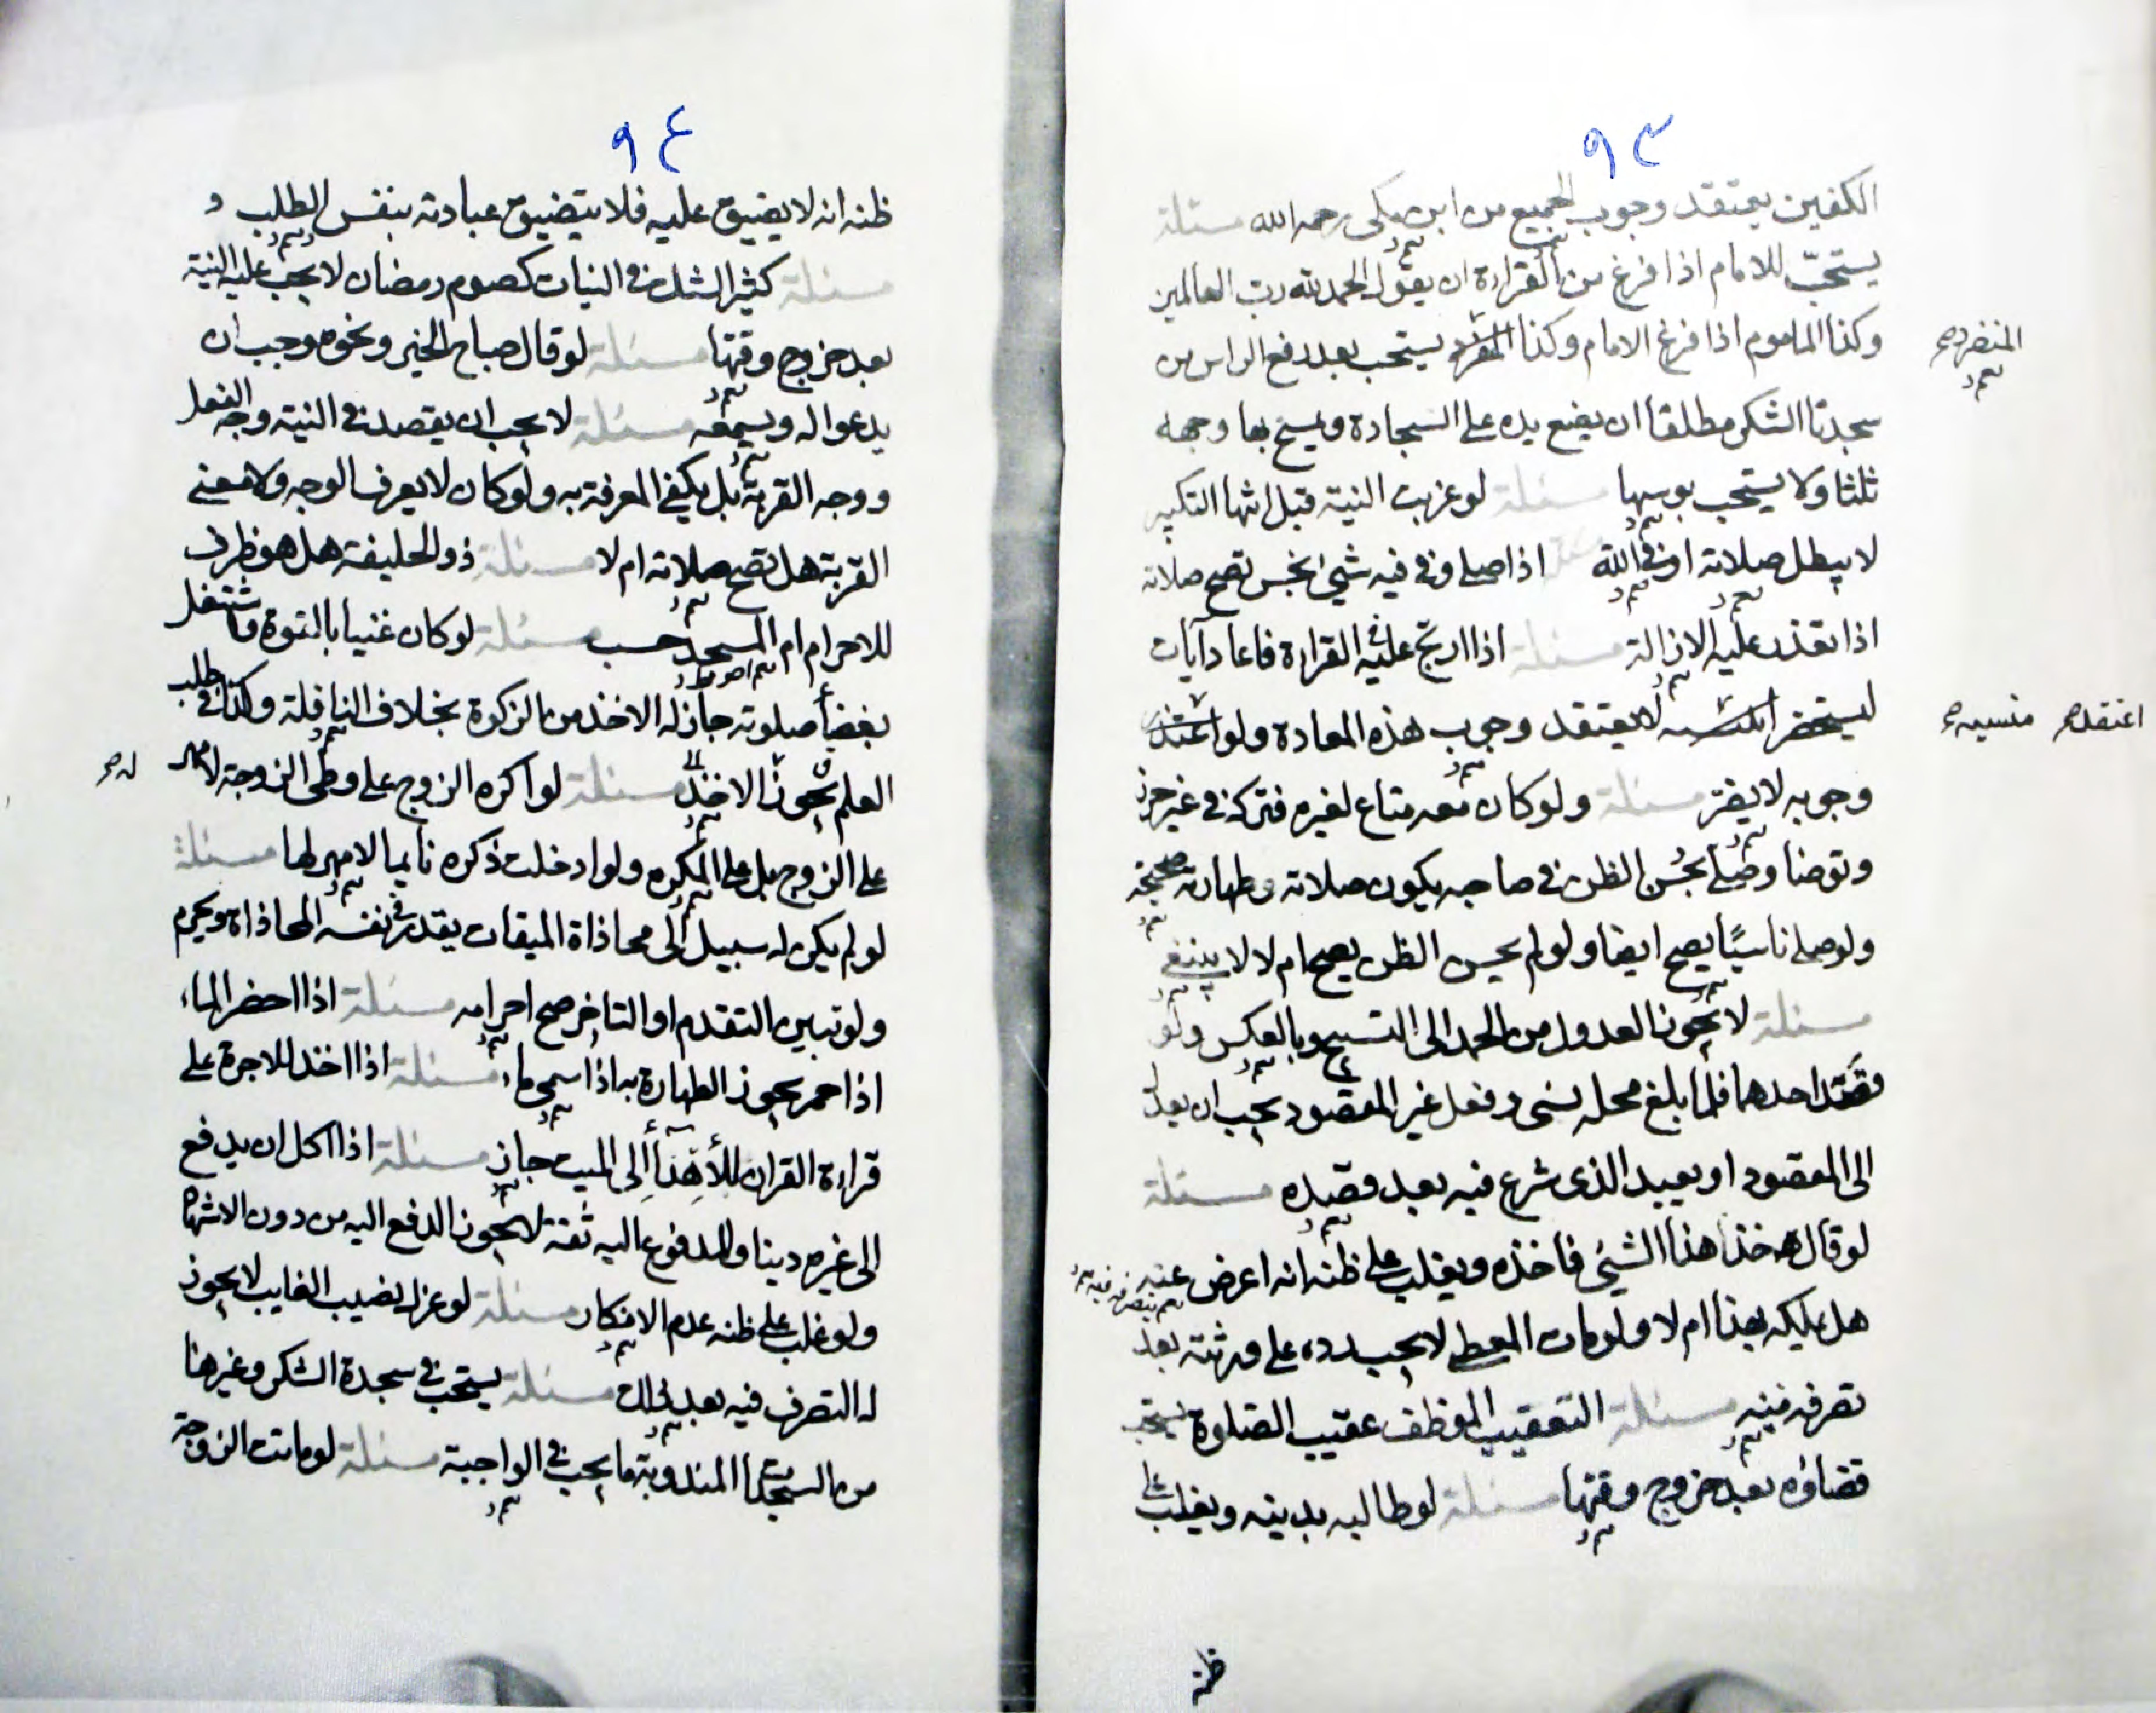 ٩٣
الكفين يعتقد وجوب الجميع من ابن مكى رحمه الله مسئلة
يستحبّ للامام اذا فرغ من القراءة ان يقول الحمد لله رب العالمين
وكذا الماموم اذا فرغ الامام وكذا يستحب بعد رفع الراس من
المنفرد صح
سجدتا الشكر مطلقا ان يضع يده على السجادة ويمسح بها وجهه
ثلثا ولا يستحب بوسها مسئلة لو عزبت النية قبل انتها التكبير
لا يبطل صلاته او فى الله اذا صلى وفى فيه شيئ نجس تصح صلاته
اذا تعذر عليه الازالة مسئلة اذا ارتج عليه القراءة فاعاد آيات
ليستحضر لا يعتقد وجوب هذه المعادة ولو
اعتقد صح منسيه صح
وجوبه لا يضر مسئلة ولو كان معه متاع لغيره فتركه فى غير حرز
وتوضا وصلى بحُسن الظن فى صاحبه يكون صلاته وطهارته صحيحة
ولو صلى ناسيًا يصح ايضا ولو لم يحسن الظن يصح ام لا لا ينبغى
مسئلة لا يجوز العدول من الحمد الى التسبيح وبالعكس ولو
قصَد احدهما فلما بلغ محله نسى وفعل غير المقصود يجب ان يعدل
الى المقصود او يعيد الذى شرع فيه بعد قصده مسئلة
لو قال خذ هذا الشيئ فاخذه ويغلب على ظنه انه اعرض عنه
هل يملكه بهذا ام لا ولو مات المعطى لا يجب رده على ورثته بعد
تصرفه فيه مسئلة التعقيب الموظف عقيب الصلوة يستحب
قضاؤه بعد خروج وقتها مسئلة لو طالبه بدينه ويغلب على
ظنه
٩٤
ظنه انه لا يضيق عليه فلا يتضيق عبادته بنفس الطلب
مسئلة كثير الشك فى النيات كصوم رمضان لا يجب عليه النية
بعد خروج وقتها مسئلة لو قال صباح الخير ونحوه وجب ان
يدعو اله ويسمعه مسئلة لا يجب ان يقصد فى النية وجه الفعل
ووجه القربة بل يكفى المعرفة به ولو كان لا يعرف الوجه ولا معنى
القربة هل تصح صلاته ام لا مسئلة ذو الحليفة هل هو ظرف
للاحرام ام المسجد حسب مسئلة لو كان غنيا بالقوة فاشتغل
بغضا صلوته جاز له الاخذ من الزكوة بخلاف النافلة وكذا فى طلب
العلم يجوز الاخذ مسئلة لو اكره الزوج على وطى الزوجة لا مهر
له صح
على الزوج بل على المكره ولو ادخلت ذكره نايما لا مهر لها مسئلة
لو لم يكن له سبيل الى محاذاة الميقات يقدر فى نفسه المحاذاة ويحرم
ولو تبين التقدم او التاخر صح احرامه مسئلة اذا احضر الماء
اذا حمر يجوز الطهارة به اذا سمى ماء مسئلة اذا اخذ الاجرة على
قراءة القران للأهدأ الى الميت جاز مسئلة اذا اكل ان يدفع
الى غيره دينا والمدفوع اليه ثقة لا يجوز الدفع اليه من دون الاشهاد
ولو غلب على ظنه عدم الانكار مسئلة لو عزل نصيب الغايب لا يجوز
له التصرف فيه بعد ذلك مسئلة يستحب فى سجدة الشكر وغيرها
من السجدات المندوبة ما يجب فى الواجبة مسئلة لو ماتت الزوجة